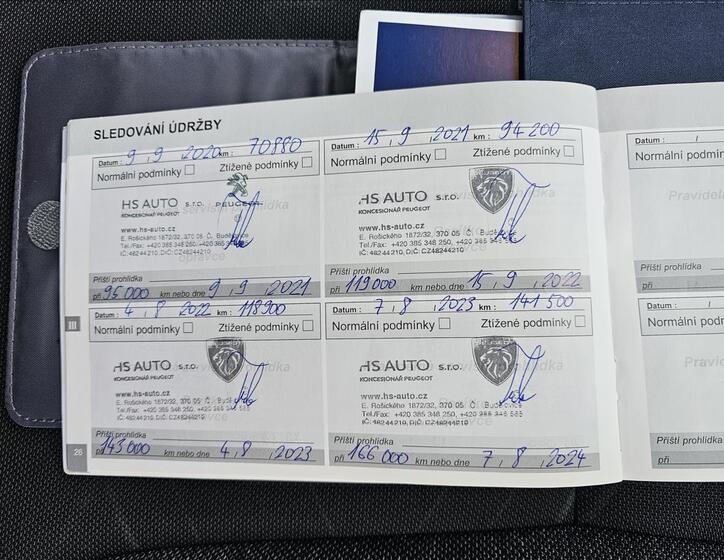 SLEDOVÁNÍ ÚDRŽBY
Datum : 9, 9, 2020 km : 70880
Normální podmínky Ztížené podmínky
HS AUTO s.r.o. PEUGEOT
KONCESIONÁŘ PEUGEOT
www.hs-auto.cz
E. Rošického 1872/32, 370 05 Č. Budějovice
Tel./Fax: +420 385 348 250, +420 385
IČ:48244210, DIČ:CZ48244210
Příští prohlídka
při 95000 km nebo dne 9, 9, 2021
Datum : 15, 9, 2021 km : 94200
Normální podmínky Ztížené podmínky
HS AUTO s.r.o.
KONCESIONÁŘ PEUGEOT
www.hs-auto.cz
E. Rošického 1872/32, 370 05 Č. Budějovice
Tel./Fax: +420 385 348 250, +420 385 346 585
IČ:48244210, DIČ:CZ48244210
Příští prohlídka
při 119000 km nebo dne 15, 9, 2022
Datum : 4, 8, 2022 km : 118900
Normální podmínky Ztížené podmínky
HS AUTO s.r.o.
KONCESIONÁŘ PEUGEOT
www.hs-auto.cz
E. Rošického 1872/32, 370 05 Č. Budějovice
Tel./Fax: +420 385 348 250, +420 385 346 585
IČ:48244210, DIČ:CZ48244210
Příští prohlídka
při 143000 km nebo dne 4, 8, 2023
Datum : 7, 8, 2023 km : 141500
Normální podmínky Ztížené podmínky
HS AUTO s.r.o.
KONCESIONÁŘ PEUGEOT
www.hs-auto.cz
E. Rošického 1872/32, 370 05 Č. Budějovice
Tel./Fax: +420 385 348 250, +420 385 346 585
IČ:48244210, DIČ:CZ48244210
Příští prohlídka
při 166000 km nebo dne 7, 8, 2024
III
26
Datum : /
Normální podm
Pravidel
Příští prohlídka
při
Datum : /
Normální podm
Pravide
Příští prohlídka
při